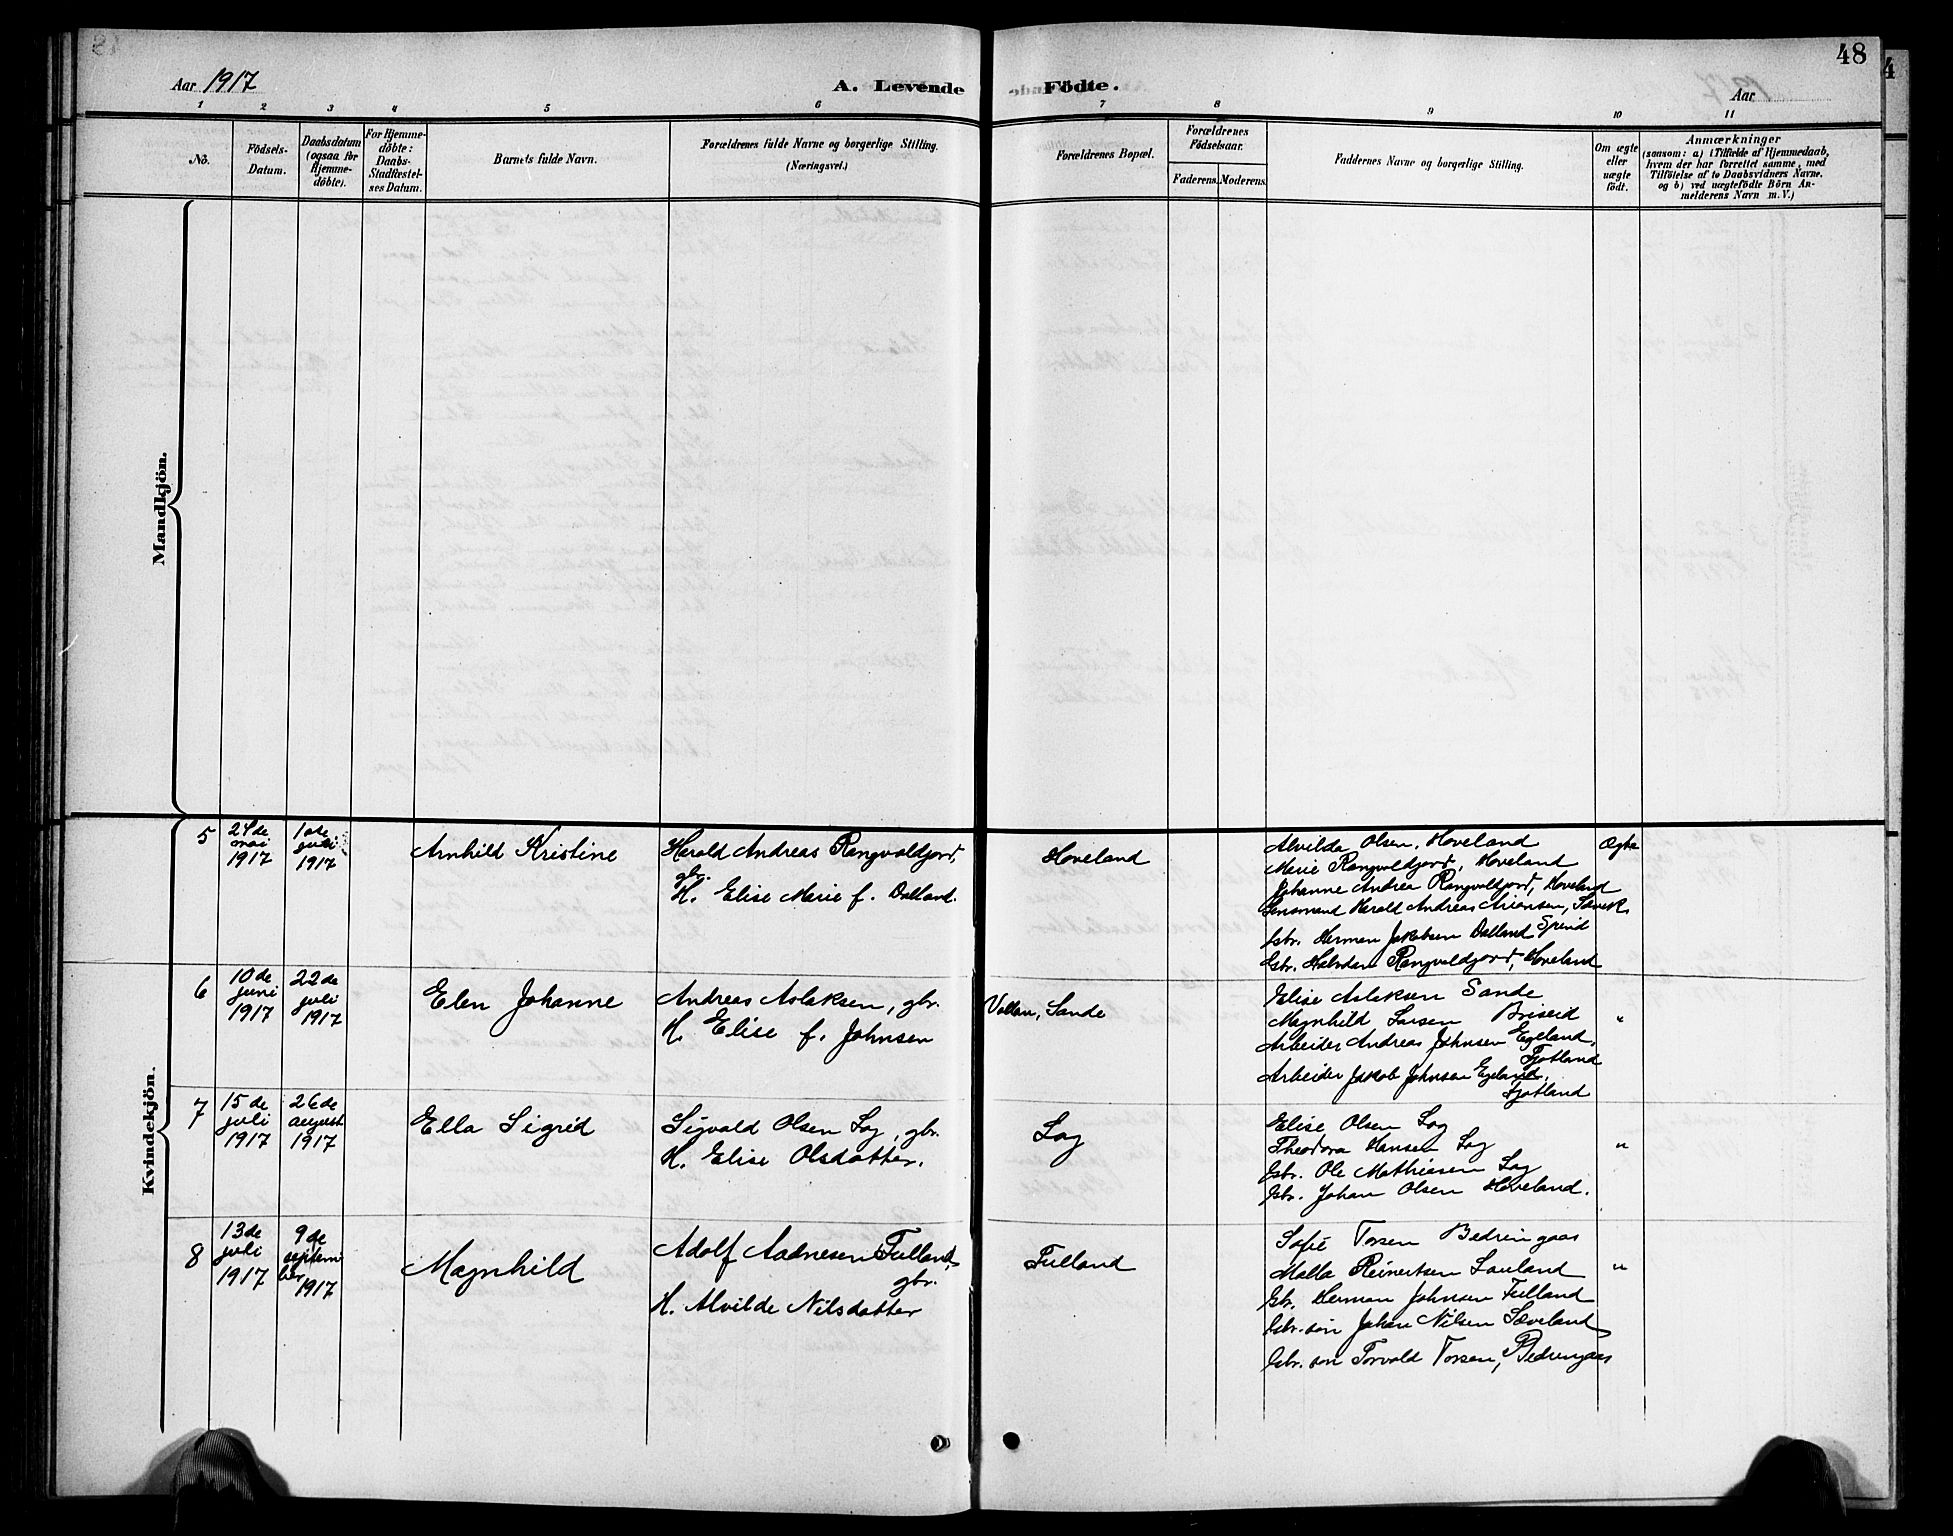 48
Aar 1917
A. Levende Födte.
Aar
1 2 3 4 5 6 7 8 9 10 11
No.
Födsels-
Datum.
Daabsdatum
(ogsaa for
Hjemme-
döbte).
For Hjemme-
döbte:
Daabs-
Stadfæstel-
ses Datum.
Barnets fulde Navn.
Forældrenes fulde Navne og borgerlige Stilling.
(Næringsvei.)
Forældrenes Bopæl.
Forældrenes
Födselsaar.
Faderens. Moderens.
Faddernes Navne og borgerlige Stilling.
Om ægte
eller
uægte
födt.
Anmærkninger
(saasom: a) i Tilfælde af Hjemmedaab,
hvem der har forrettet samme, med
Tilföielse af to Daabsvidners Navne.
og b) ved uægtefödte Börn An-
melderens Navn m. V.)
Mandkjön.
Kvindekjön.
5
24de
mai
1917
1ste
juli
1917
Arnhild Kristine
Harald Andreas Rangvaldjord,
gbr.
H. Elise Marie f. Dalland.
Hoveland
Alvilda Olsen, Hoveland
Marie Rangvaldjord, Hoveland
Johanne Andrea Rangvaldjord, Hoveland
Harald Andreas
Gbr. Herman Jakobsen Dalland Spind
Gbr. Halvdan Rangvaldjord, Hoveland
Ægte
6
10de
juni
1917
22de
juli
1917
Elen Johanne
Andreas Aslaksen, gbr.
H. Elise f. Johnsen
Sande
Elise Aslaksen Sande
Magnhild Larsen Briseid
Arbeider Andreas Johnsen Egeland,
Fjotland
Arbeider Jakob Johnsen Egeland,
Fjotland
"
7
15de
juli
1917
26de
august
1917
Ella Sigrid
Sigvald Olsen Log, gbr.
H. Elise Olsdatter.
Log
Elise Olsen Log
Theodora Hansen Log
Gbr. Ole Mathiasen Log
Gbr. Johan Olsen Hoveland.
"
8
13de
juli
1917
9de
septem
ber
1917
Magnhild
Adolf Aadnesen Fulland,
gbr.
H. Alvilde Nilsdatter
Fulland
Sofie Torsen Bedringaas
Malla Reinertsen Lauland
Gbr. Herman Johnsen Fulland
Gbr. søn Johan Nilsen Sæveland
Gbr. søn Torvald Torsen, Bedringaas
"